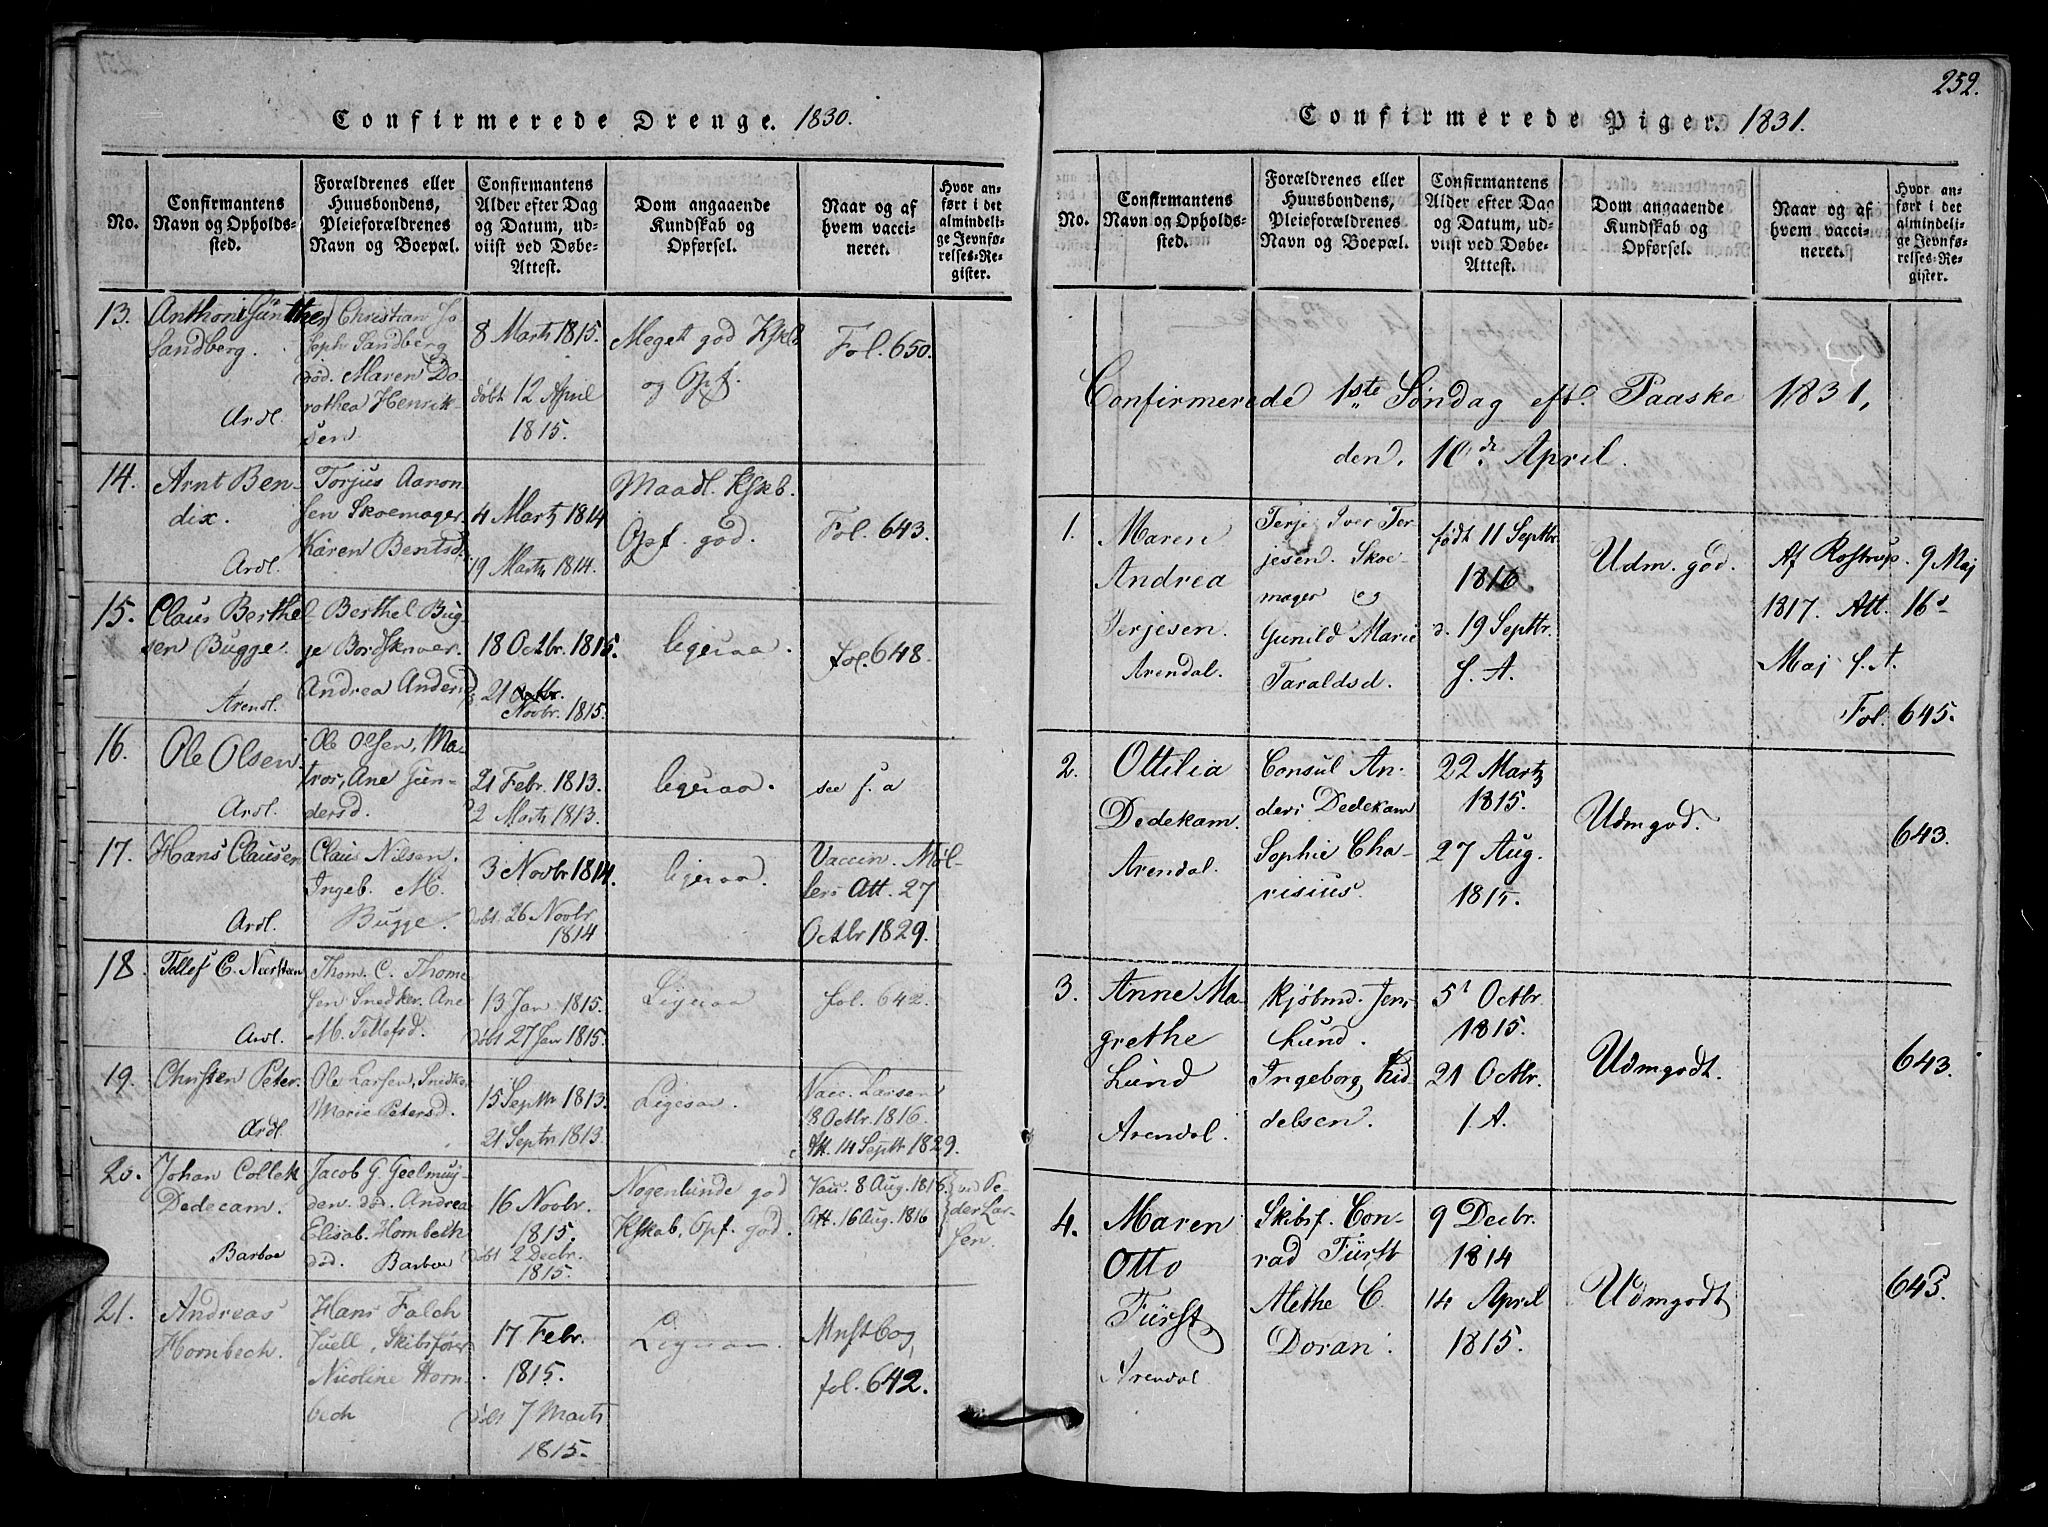 Confirmerede Drenge. 1830.
No.
Confirmantens
Navn og Opholds-
sted.
Forældrenes eller
Huusbondens,
Pleieforældrenes
Navn og Boepæl.
Confirmantens
Alder efter Dag
og Datum, ud-
viist ved Døbe-
Attest.
Dom angaaende
Kundskab og
Opførsel.
Naar og af
hvem vacci-
neret.
Hvor an-
ført i det
almindeli-
ge Jevnfø-
relses-Re-
gister.
13.
Anthoni Günther
Sandberg.
Ardl.
Christian Jo
seph Sandberg
død. Maren Do-
rothea Henrik-
sen
8 Marts 1815.
døbt 12 April
1815.
Meget god Kskb
og Opf.
Fol. 650.
14.
Arnt Ben-
dix.
Ardl.
Torjus Aaron-
sen Skoemager
Karen Bentsd.
4 Martz 1814
19 Marts 1814.
Maadl. Kskb.
Opf. god.
Fol. 643.
15.
Claus Berthel
sen Bugge.
Arendl.
Berthel Bug-
ge Bordskriver
Andrea Andersd
18 Octbr. 1815.
21 Octbr.
Novbr. 1815.
ligesaa.
fol. 648.
16.
Ole Olsen.
Ardl.
Ole Olsen, Ma-
tros, Ane Gun-
dersd.
21 Febr. 1813.
2 Marts 1813.
ligesaa.
see f. a
17.
Hans Clausen
Ardl.
Claus Nilsen.
Ingeb. M.
Bugge.
3 Novbr 1814.
døbt 26 Novbr
1814
ligesaa.
Vaccin. Møl-
lers Att. 27
Octbr 1829.
18.
Tellef C. Næersteen
Ardl.
Thom. C. Thome
sen Snedker. Ane
M. Tellefsd.
13 Jan 1815.
døbt 27 Jan 1815.
Ligesaa
fol. 642.
19.
Christen Peter.
Ardl
Ole Larsen, Snedker
Marie Petersd.
15 Septbr 1813.
21 Septbr 1813.
Ligesaa.
Vacc. Larsen
18 Octbr. 1816.
Att. 14 Septbr 1829.
20.
Johan Collett
Dedecam.
Barboe
Jacob G. Geelmuy-
den. død. Andrea
Elisab. Hornbech
død. Barboe
16 Novbr.
1815.
døbt 2 Decbr.
1815.
Nogenlunde god
Kskab, Opf. god.
Vacc. 8 Aug. 1816.
Att. 16 Aug. 1816
ved Pe-
der Lar-
sen.
21.
Andreas
Hornbech.
Hans Falch
Juell, Skibsfører
Nicoline Horn-
bech
17 Febr.
1815.
døbt 7 Marts
1815.
Ligesaa.
Mnstbog,
fol. 642.
252.
Confirmerede Piger. 1831.
No.
Confirmantens
Navn og Opholds-
sted.
Forældrenes eller
Huusbondens,
Pleieforældrenes
Navn og Boepæl.
Confirmantens
Alder efter Dag
og Datum, ud-
viist ved Døbe-
Attest.
Dom angaaende
Kundskab og
Opførsel.
Naar og af
hvem vacci-
neret.
Hvor an-
ført i det
almindeli-
ge Jevnfø-
relses-Re-
gister.
Confirmerede 1ste Søndag eft. Paaske 1831,
den, 10de April.
1.
Maren
Andrea
Terjesen.
Arendal.
Terje Iver Ter-
jesen. Skoe-
mager og
Gunild Marie
Taraldsd.
født 11 Septbr.
1816
d. 19 Septbr.
s. A.
Udm. god.
Af Rostrup. 9 Maj
1817. Att. 16d
Maj s. A.
Fol. 645.
2.
Ottilia
Dedekam.
Arendal.
Consul An-
ders Dedekam
Sophie Cha-
risius.
22 Martz
1815.
27 Aug.
1815.
Udmgod.
643.
3.
Anne Ma-
grethe
Lund
Arendal.
Kjøbmd. Jens
Lund.
Ingeborg Kid-
delsen.
5t Octbr.
1815.
21 Octbr.
1. A.
Udmgodt.
643.
4.
Maren
Otto
Fürst
Arendal
Skibsf. Con-
rad Fürst
Methe C.
Doran:
9 Decbr.
1814
14 April
1815.
Udmgodt
643.